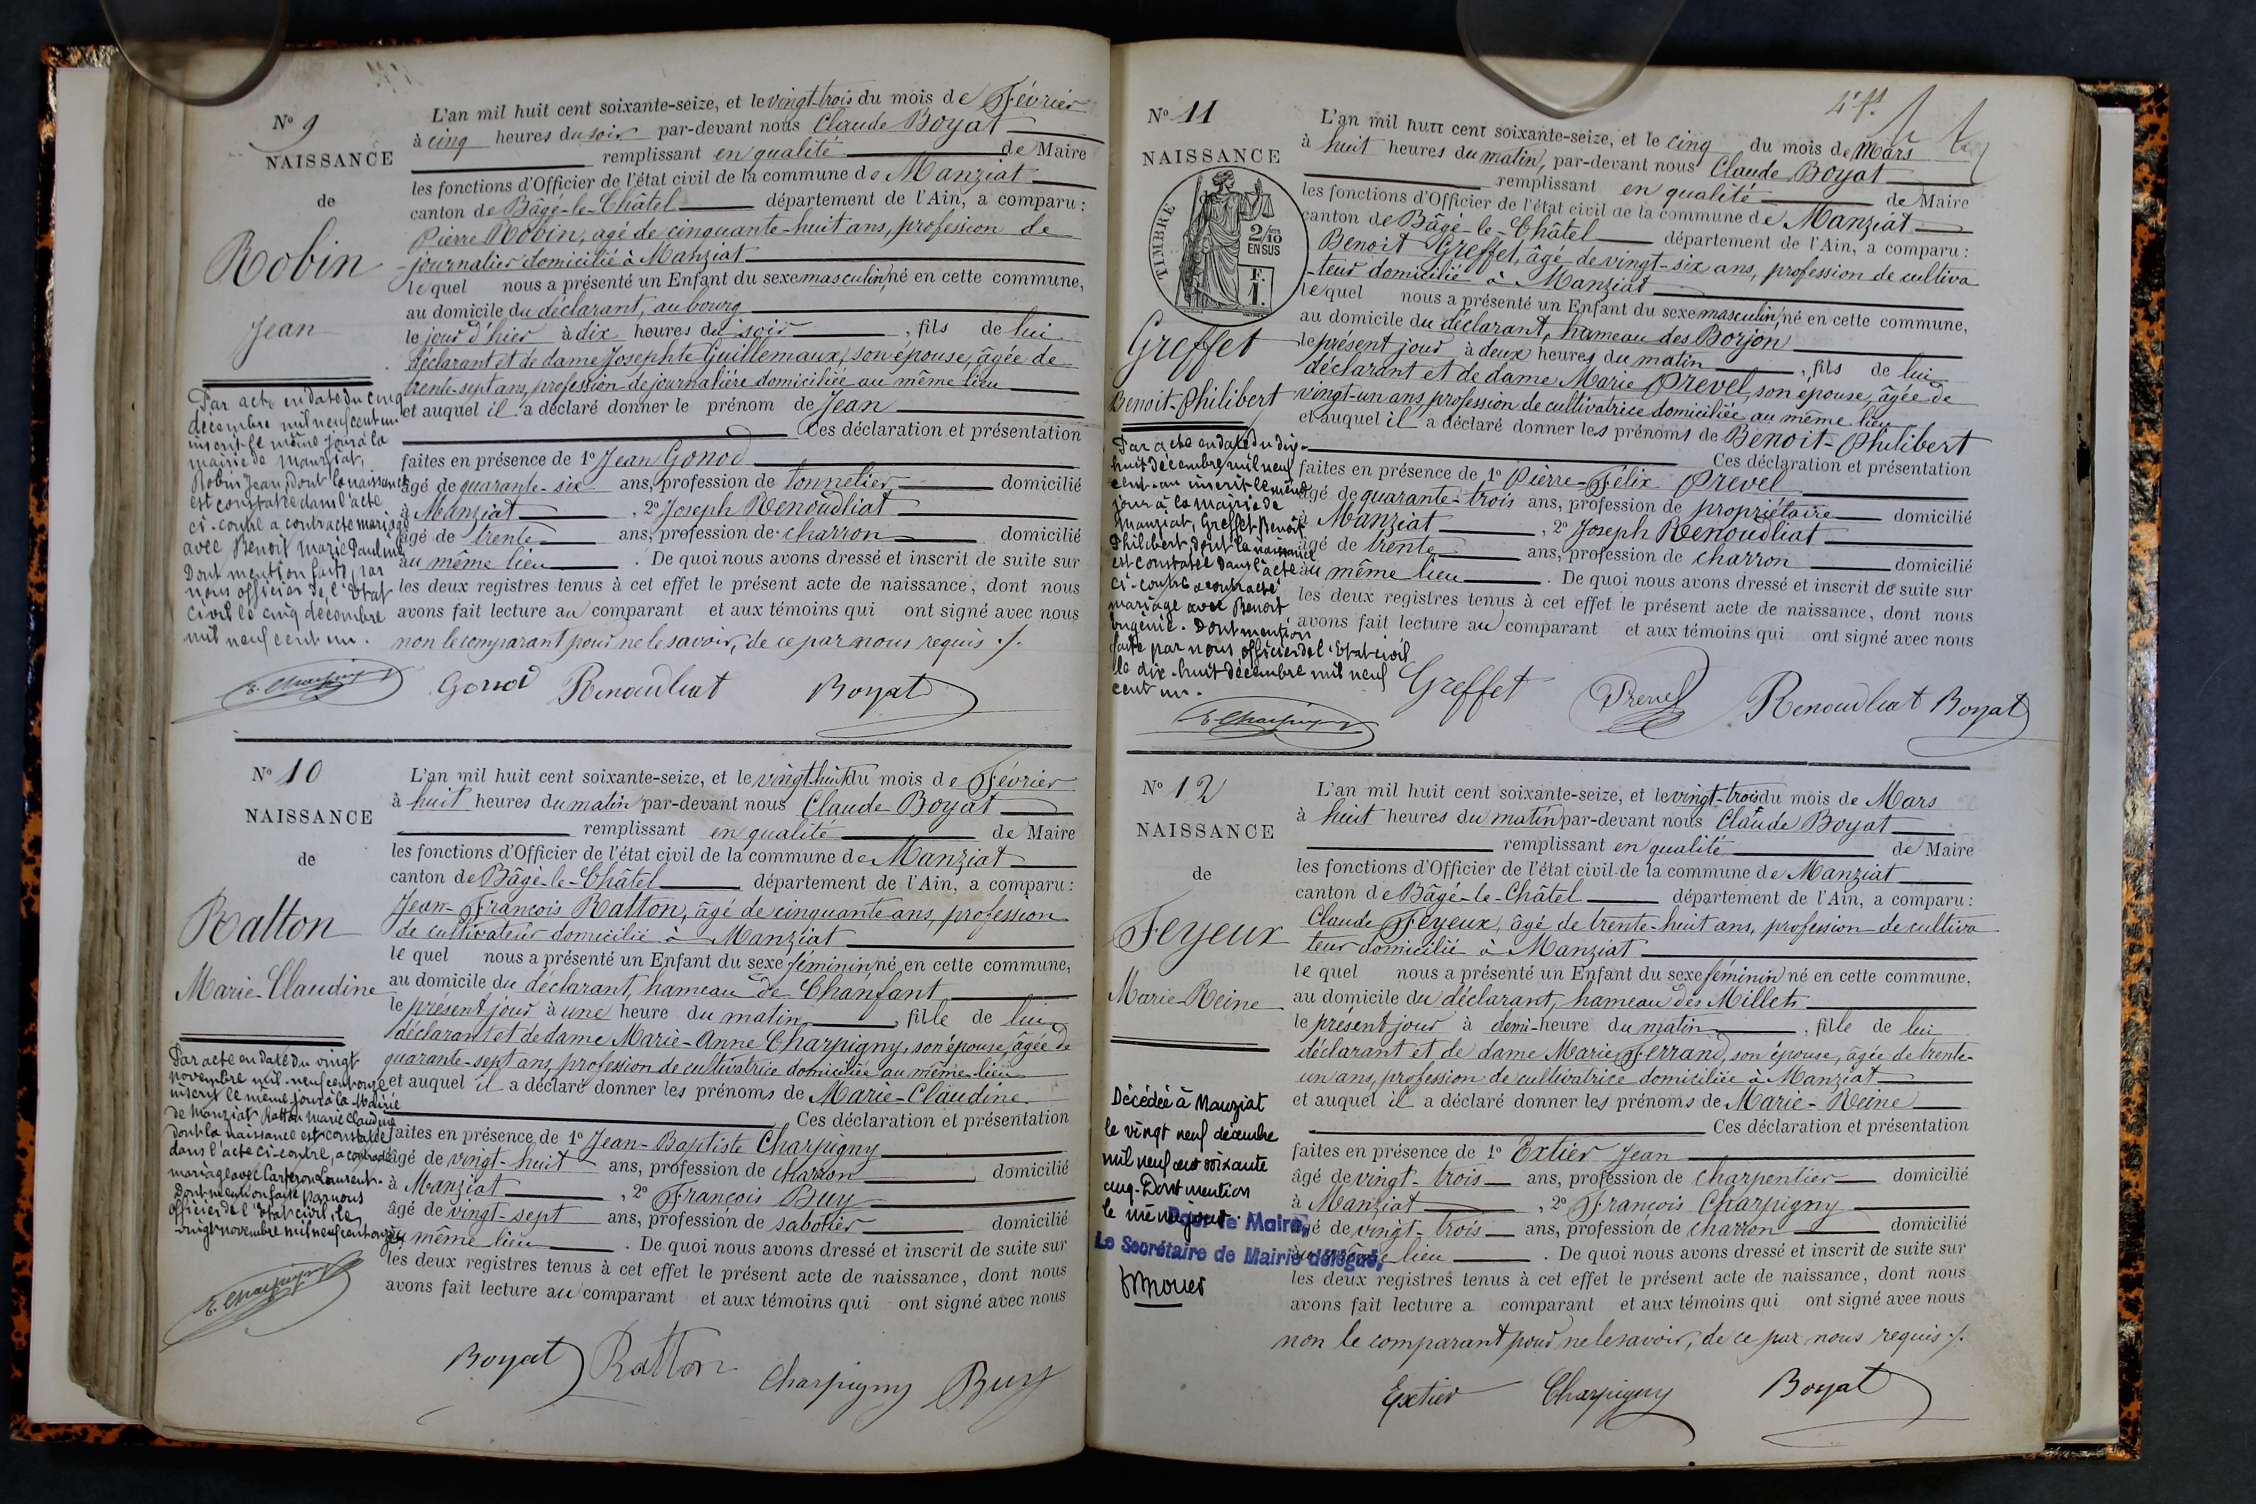 N° 9
NAISSANCE
de
Robin
Jean
Par acte en date du cinq
décembre mil neuf cent un
inscrit le même jour à la
mairie de Manziat,
Robin Jean, dont la naissance
est constatée dans l'acte
ci-contre a contracté mariage
avec Benoit Marie Pauline
Dont mention faite par
nous officier de l'Etat
civil le cinq décembre
mil neuf cent un.
L'an mil huit cent soixante-seize, et le vingt-trois du mois de Février
à cinq heures du soir par-devant nous Claude Boyat
remplissant en qualité de Maire
les fonctions d'Officier de l'état civil de la commune de Manziat
canton de Bâgé-le-Châtel département de l'Ain, a comparu :
Pierre Robin, agé de cinquante-huit ans, profession de
journalier domicilié à Manziat
lequel nous a présenté un Enfant du sexe masculin, né en cette commune,
au domicile du déclarant, au bourg
le jour d'hier à dix heures du soir , fils de lui
déclarant et de dame Josephte Guillemaux, son épouse, âgée de
trente-sept ans, profession de journalière domiciliée au même lieu
et auquel il a déclaré donner le prénom de Jean
Ces déclaration et présentation
faites en présence de 1° Jean Gonod
âgé de quarante-six ans, profession de tonnelier domicilié
à Manziat , 2° Joseph Renoudliat
âgé de trente ans, profession de charron domicilié
au même lieu . De quoi nous avons dressé et inscrit de suite sur
les deux registres tenus à cet effet le présent acte de naissance, dont nous
avons fait lecture au comparant et aux témoins qui ont signé avec nous
non le comparant pour ne le savoir, de ce par nous requis ./.
E. Charpigny Gonod Renoudliat Boyat
N° 10
NAISSANCE
de
Ratton
Marie-Claudine
Par acte en date du vingt
novembre mil-neuf cent onze
inscrit le même jour à la Mairie
de Manziat Ratton Marie Claudine
dont la naissance est constatée
dans l'acte ci-contre, a contracté
mariage avec Carteron Laurent.
Dont mention faite par nous
officier de l'Etat civil, le
vingt novembre mil neuf cent onze
E. Charpigny
L'an mil huit cent soixante-seize, et le vingt-huit du mois de Février
à huit heures du matin par-devant nous Claude Boyat
remplissant en qualité de Maire
les fonctions d'Officier de l'état civil de la commune de Manziat
canton de Bâgé-le-Châtel département de l'Ain, a comparu :
Jean-François Ratton, âgé de cinquante ans, profession
de cultivateur domicilié à Manziat
lequel nous a présenté un Enfant du sexe féminin né en cette commune,
au domicile du déclarant, hameau de Chanfant
le présent jour à une heure du matin , fille de lui
déclarant et de dame Marie-Anne Charpigny, son épouse, âgée de
quarante-sept ans, profession de cultivatrice domiciliée au même lieu
et auquel il a déclaré donner les prénoms de Marie-Claudine
Ces déclaration et présentation
faites en présence de 1° Jean-Baptiste Charpigny
âgé de vingt-huit ans, profession de charron domicilié
à Manziat , 2° François Buy
âgé de vingt-sept ans, profession de sabotier domicilié
au même lieu . De quoi nous avons dressé et inscrit de suite sur
les deux registres tenus à cet effet le présent acte de naissance, dont nous
avons fait lecture au comparant et aux témoins qui ont signé avec nous
Boyat Ratton Charpigny Buy
N° 11
NAISSANCE
TIMBRE
2/10
EN SUS
F.
1.
Greffet
Benoit-Philibert
Par acte en date du dix-
huit décembre mil neuf
cent-un inscrit le même
jour à la mairie de
Manziat, Greffet Benoit
Philibert, dont la naissance
est constatée dans l'acte
ci-contre a contracté
mariage avec Benoit
Eugénie. Dont mention
faite par nous officier de l'Etat civil
le dix-huit décembre mil neuf
cent un.
L'an mil huit cent soixante-seize, et le cinq du mois de Mars
à huit heures du matin, par-devant nous Claude Boyat
remplissant en qualité de Maire
les fonctions d'Officier de l'état civil de la commune de Manziat
canton de Bâgé-le-Châtel département de l'Ain, a comparu :
Benoit Greffet, âgé de vingt-six ans, profession de cultiva
-teur domicilié à Manziat
lequel nous a présenté un Enfant du sexe masculin, né en cette commune,
au domicile du déclarant, hameau des Borjon
le présent jour à deux heures du matin , fils de lui
déclarant et de dame Marie Prevel, son épouse, âgée de
vingt-un ans, profession de cultivatrice domiciliée au même lieu
et auquel il a déclaré donner les prénoms de Benoit-Philibert
Ces déclaration et présentation
faites en présence de 1° Pierre-Félix Prevel
âgé de quarante-trois ans, profession de propriétaire domicilié
à Manziat , 2° Joseph Renoudliat
âgé de trente ans, profession de charron domicilié
au même lieu . De quoi nous avons dressé et inscrit de suite sur
les deux registres tenus à cet effet le présent acte de naissance, dont nous
avons fait lecture au comparant et aux témoins qui ont signé avec nous
E. Charpigny Greffet Prevel Renoudliat Boyat
N° 12
NAISSANCE
de
Feyeux
Marie-Reine
Décédée à Manziat
le vingt neuf décembre
mil neuf cent soixante
cinq. Dont mention
le même jour.
Pour le Maire,
Le Secrétaire de Mairie délégué,
L'an mil huit cent soixante-seize, et le vingt-trois du mois de Mars
à huit heures du matin par-devant nous Claude Boyat
remplissant en qualité de Maire
les fonctions d'Officier de l'état civil de la commune de Manziat
canton de Bâgé-le-Châtel département de l'Ain, a comparu :
Claude Feyeux, âgé de trente-huit ans, profession de cultiva
teur domicilié à Manziat
lequel nous a présenté un Enfant du sexe féminin né en cette commune,
au domicile du déclarant, hameau des Millets
le présent jour à demi-heure du matin , fille de lui
déclarant et de dame Marie Ferrand, son épouse, âgée de trente-
un ans, profession de cultivatrice domiciliée à Manziat
et auquel il a déclaré donner les prénoms de Marie-Reine
Ces déclaration et présentation
faites en présence de 1° Extier Jean
âgé de vingt-trois ans, profession de charpentier domicilié
à Manziat , 2° François Charpigny
âgé de vingt-trois ans, profession de charron domicilié
au même lieu . De quoi nous avons dressé et inscrit de suite sur
les deux registres tenus à cet effet le présent acte de naissance, dont nous
avons fait lecture a comparant et aux témoins qui ont signé avec nous
non le comparant pour ne le savoir, de ce par nous requis ./.
Extier Charpigny Boyat